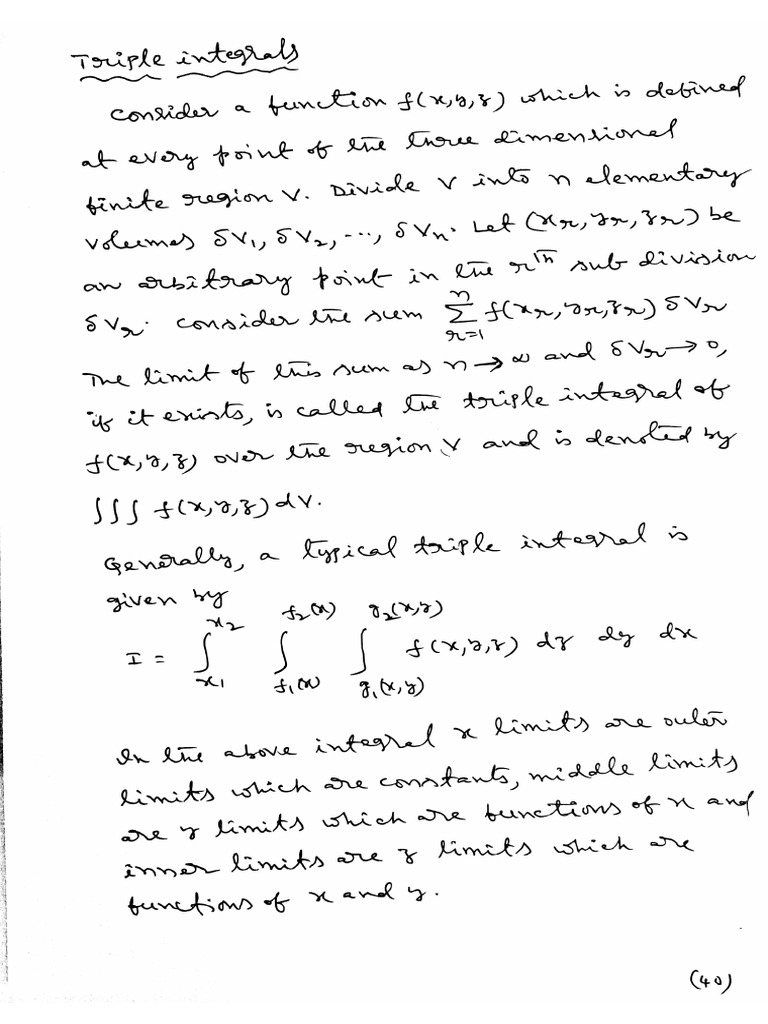 Triple integrals
Consider a function f(x,y,z) which is defined
at every point of the three dimensional
finite region V. Divide V into n elementary
volumes δV₁, δV₂, ..., δVₙ. Let (xᵣ, yᵣ, zᵣ) be
an arbitrary point in the rᵗʰ sub division
δVᵣ. Consider the sum ∑_{r=1}^{n} f(xᵣ, yᵣ, zᵣ) δVᵣ
The limit of this sum as n → ∞ and δVᵣ → 0,
if it exists, is called the triple integral of
f(x,y,z) over the region V and is denoted by
∫∫∫ f(x,y,z) dV.
Generally, a typical triple integral is
given by
I = ∫_{x₁}^{x₂} ∫_{f₁(x)}^{f₂(x)} ∫_{g₁(x,y)}^{g₂(x,y)} f(x,y,z) dz dy dx
In the above integral x limits are outer
limits which are constants, middle limits
are y limits which are functions of x and
inner limits are z limits which are
functions of x and y.
(40)